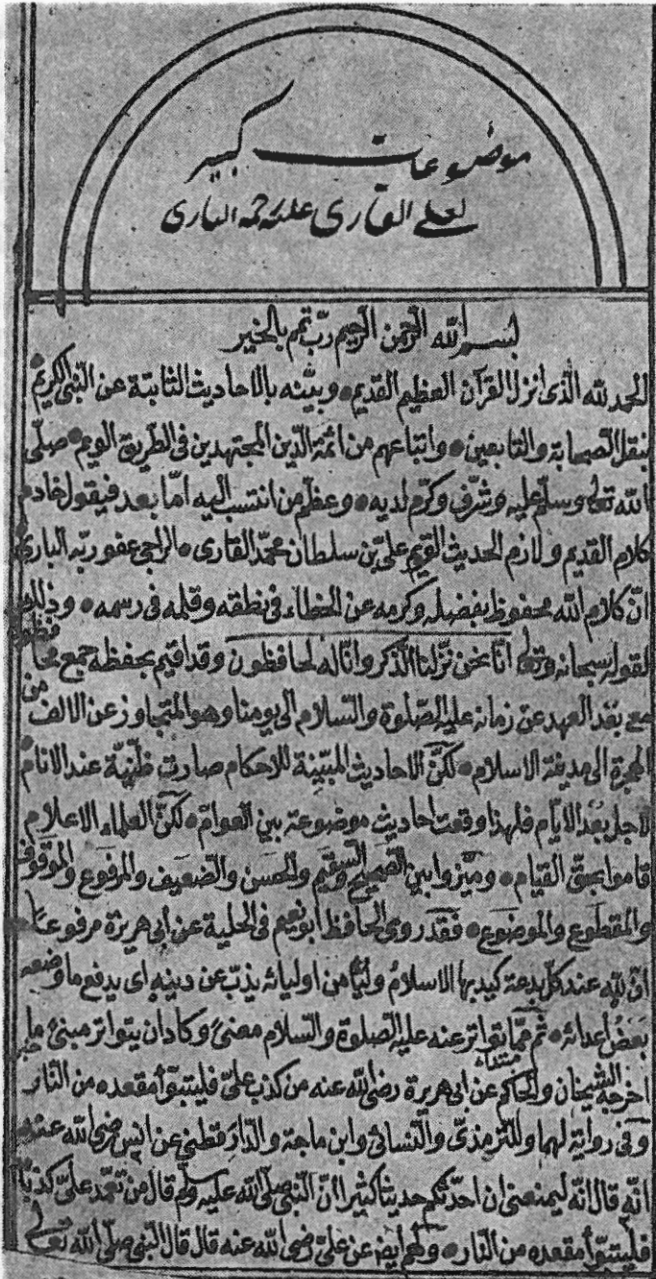 موضوعات كبير
لعلي القاري عليه رحمة الباري
بسم الله الرحمن الرحيم رب تمم بالخير
الحمد لله الذى انزل القرآن العظيم القديم وبيّنه بالاحاديث الثابتة عن النبى الكريم
بنقل الصحابة والتابعين واتباعهم من ائمة الدين المجتهدين فى الطريق القويم صلى
الله تعالى وسلم عليه وشرف وكرم لديه وعظم من انتسب اليه امّا بعد فيقول خادم
كلام القديم ولازم الحديث القويم على بن سلطان محمد القارى الراجى عفو ربه البارى
انّ كلام الله محفوظ بفضله وكرمه عن الخطاء فى نطقه وقلمه فى رسمه وذلك
لقوله سبحانه وتعالى انّا نحن نزلنا الذكر وانّا له لحافظون وقد اقيم بحفظه جمع محافظون
مع بعد العهد عن زمانه عليه الصلوة والسلام الى يومنا وهو المتجاوز عن الالف من
الهجرة الى مدينة الاسلام لكنّ الاحاديث المبيّنة للاحكام صارت ظنّيّة عند الانام
لاجل بعد الايام فلهذا وقعت احاديث موضوعة بين العوام لكنّ العلماء الاعلام
قاموا بحق القيام وميّزوا بين الصحيح والسقيم والحسن والضعيف والمرفوع والموقوف
والمقطوع والموضوع فقد روى الحافظ ابو نعيم فى الحلية عن ابى هريرة مرفوعا
انّ لله عند كل بدعة كيد بها الاسلام وليّا من اوليائه يذبّ عن دينه اى يدفع ما وضعه
بعض أعدائه ثم ممّا تواتر عنه عليه الصلوة والسلام معنىً وكاد ان يتواتر مبنىً ما
اخرجه الشيخان والحاكم عن ابى هريرة رضى الله عنه من كذب علىّ فليتبوّأ مقعده من النار
وفى رواية لهما وللترمذى والنسائى وابن ماجة والدارقطنى عن انس رضى الله عنه
انّه قال انّه ليمنعنى ان احدثكم حديثا كثيرا انّ النبى صلى الله عليه وسلم قال من تعمّد علىّ كذبا
فليتبوّأ مقعده من النار ولهم ايضا عن على رضى الله عنه قال قال النبى صلى الله تعالى